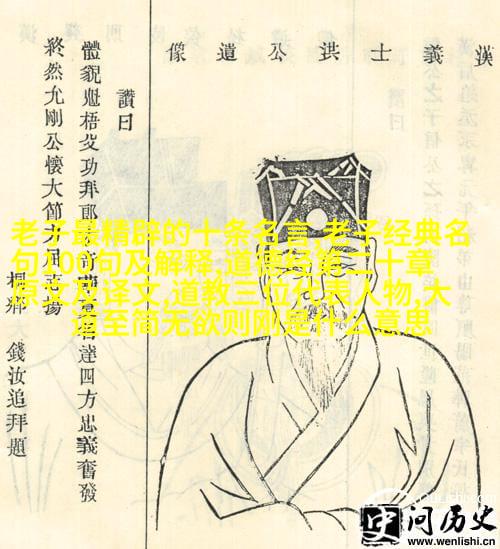 漢義士洪公遺像
讚曰
體貌魁梧 功拜郎 達四方忠義奮發
終然允剛公懷大節力屈 揚
桐鄉 錢汝追拜題
老子最精辟的十条名言,老子经典名
句100句及解释,道德经第二十章
原文及译文,道教三位代表人物,大
道至简无欲则刚是什么意思
问历史
www.wenlishi.cn